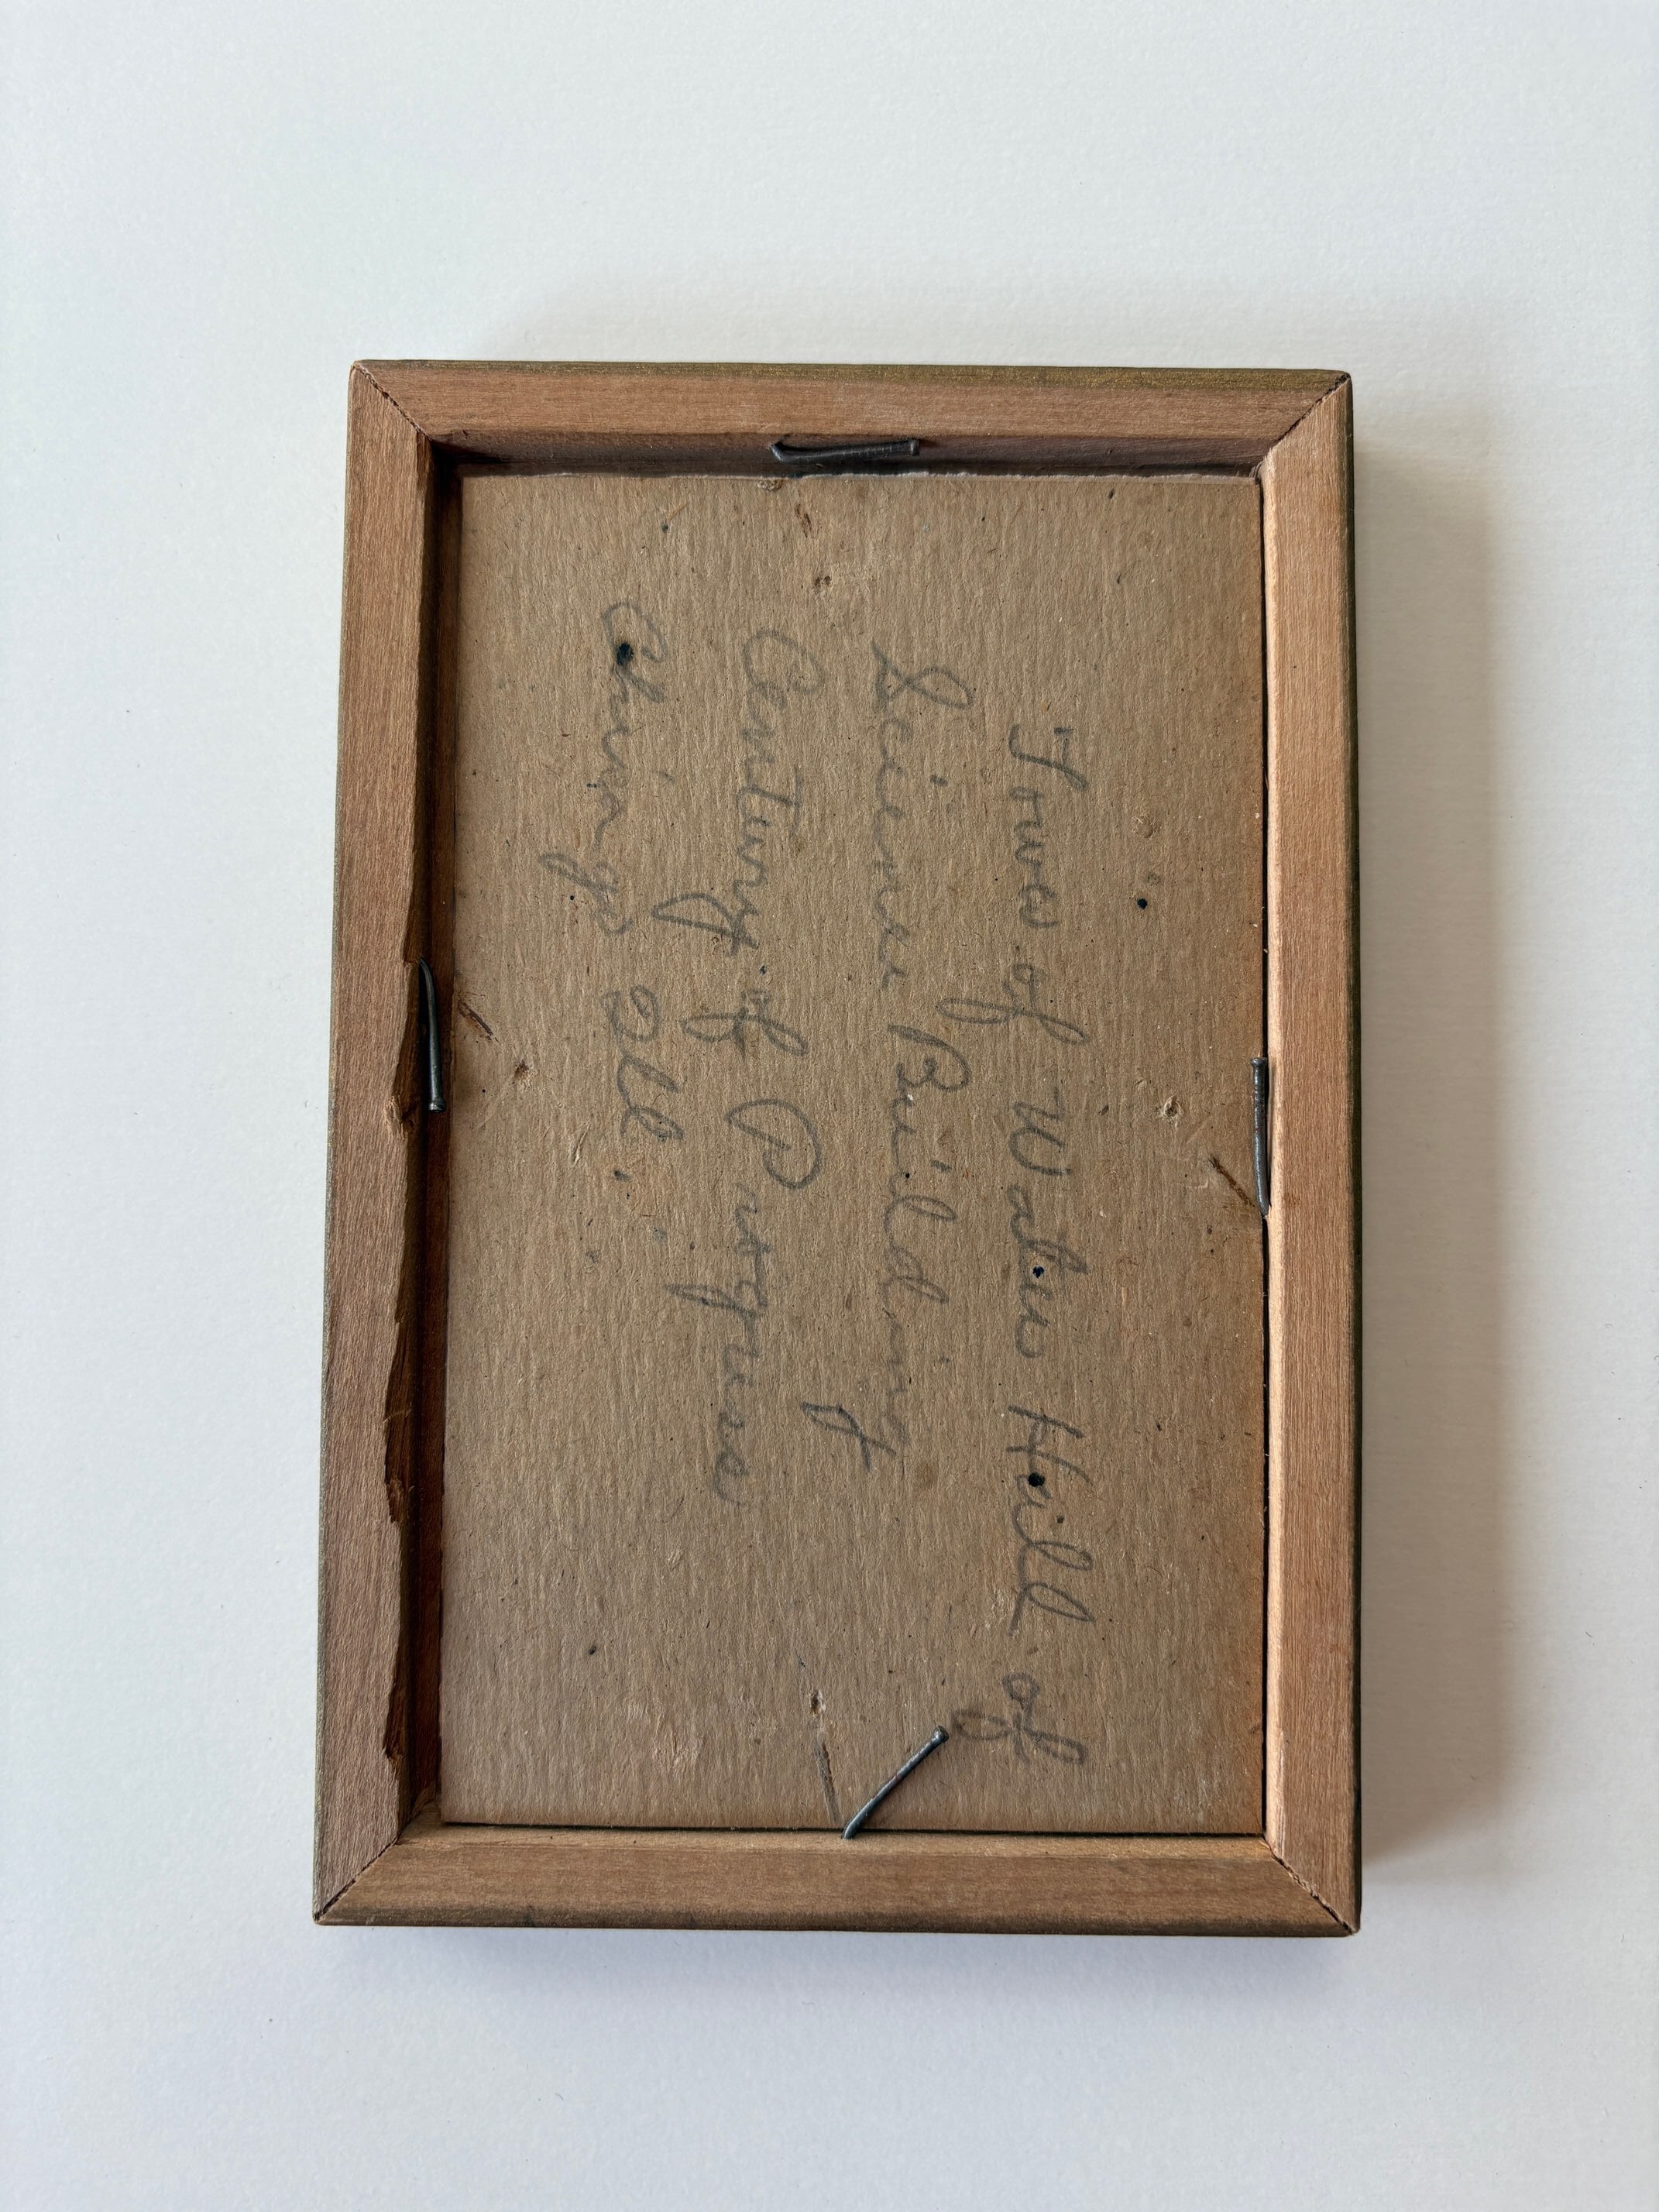 Tower of Water Hall of
Science Building
Century of Progress
Chicago Ill.